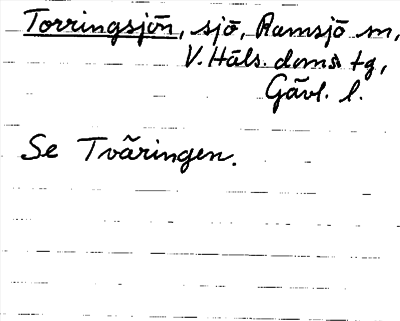 Torringsjön, sjö, Ramsjö m,
V. Häls. doms tg,
Gävl. l.
Se Tväringen.